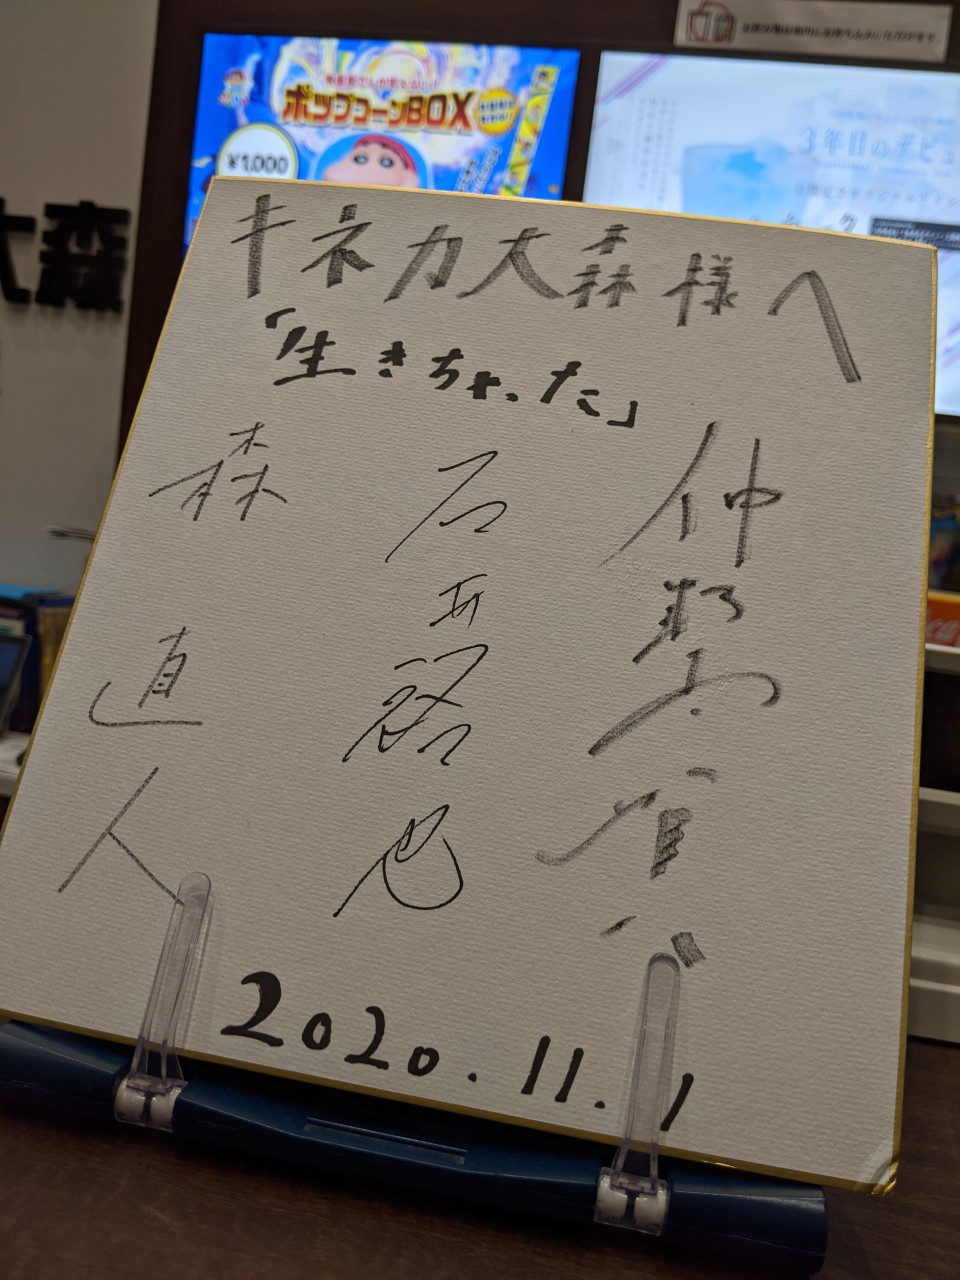 ポップコーンBOX
¥1,000
3年目のデビュ
大森
キネカ大森様へ
「生きちゃった」
仲野太賀
石井裕也
森直人
2020.11.1